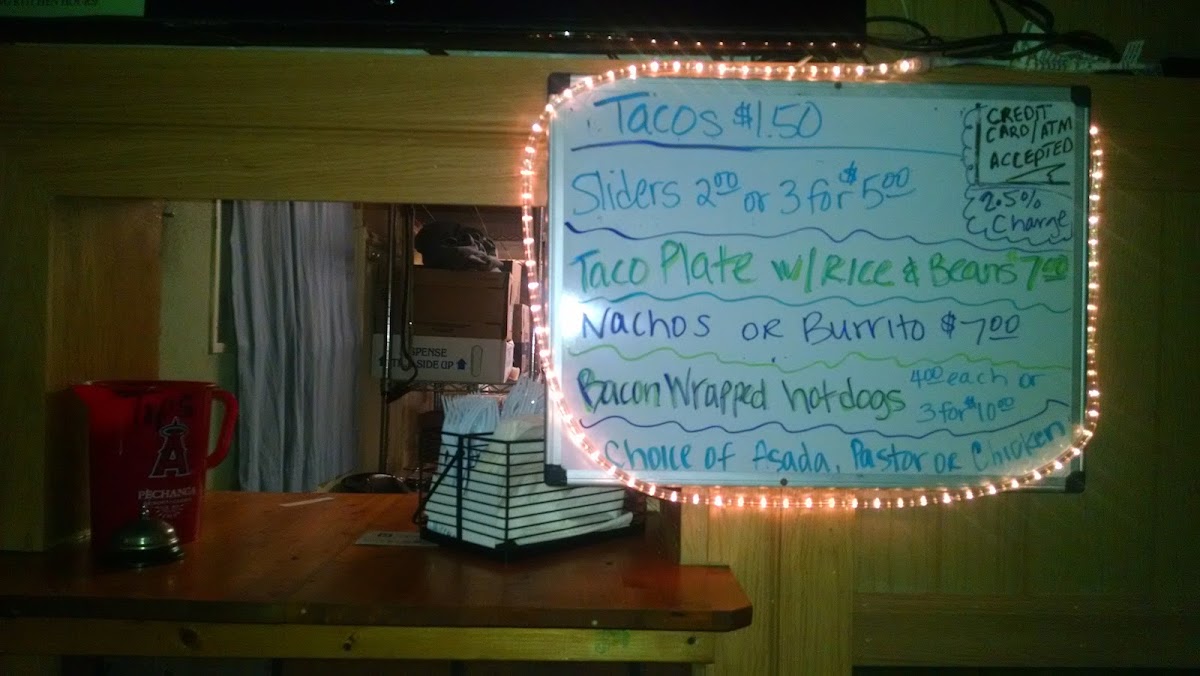 KITCHEN HOURS
Tacos $1.50
CREDIT
CARD/ATM
ACCEPTED
2.5%
Charge
Sliders 2.00 or 3 for $5.00
Taco Plate w/RICE & Beans $7.00
Nachos or Burrito $7.00
Bacon Wrapped hotdogs 4.00 each or
3 for $10.00
Choice of Asada, Pastor or Chicken
SIDE UP
TIPS
A
PECHANGA